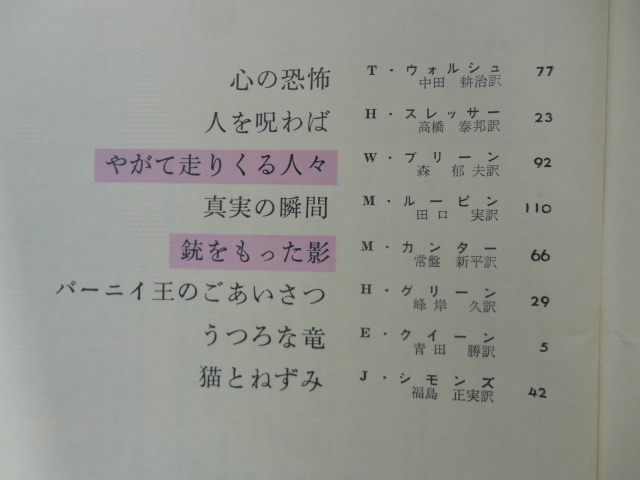 心の恐怖 T・ウォルシュ 77
中田 耕治訳
人を呪わば H・スレッサー 23
高橋 泰邦訳
やがて走りくる人々 W・ブリーン 92
森 郁夫訳
真実の瞬間 M・ルーピン 110
田口 実訳
銃をもった影 M・カンター 66
常盤 新平訳
バーニイ王のごあいさつ H・グリーン 29
峰岸 久訳
うつろな竜 E・クイーン 5
青田 勝訳
猫とねずみ J・シモンズ 42
福島 正実訳